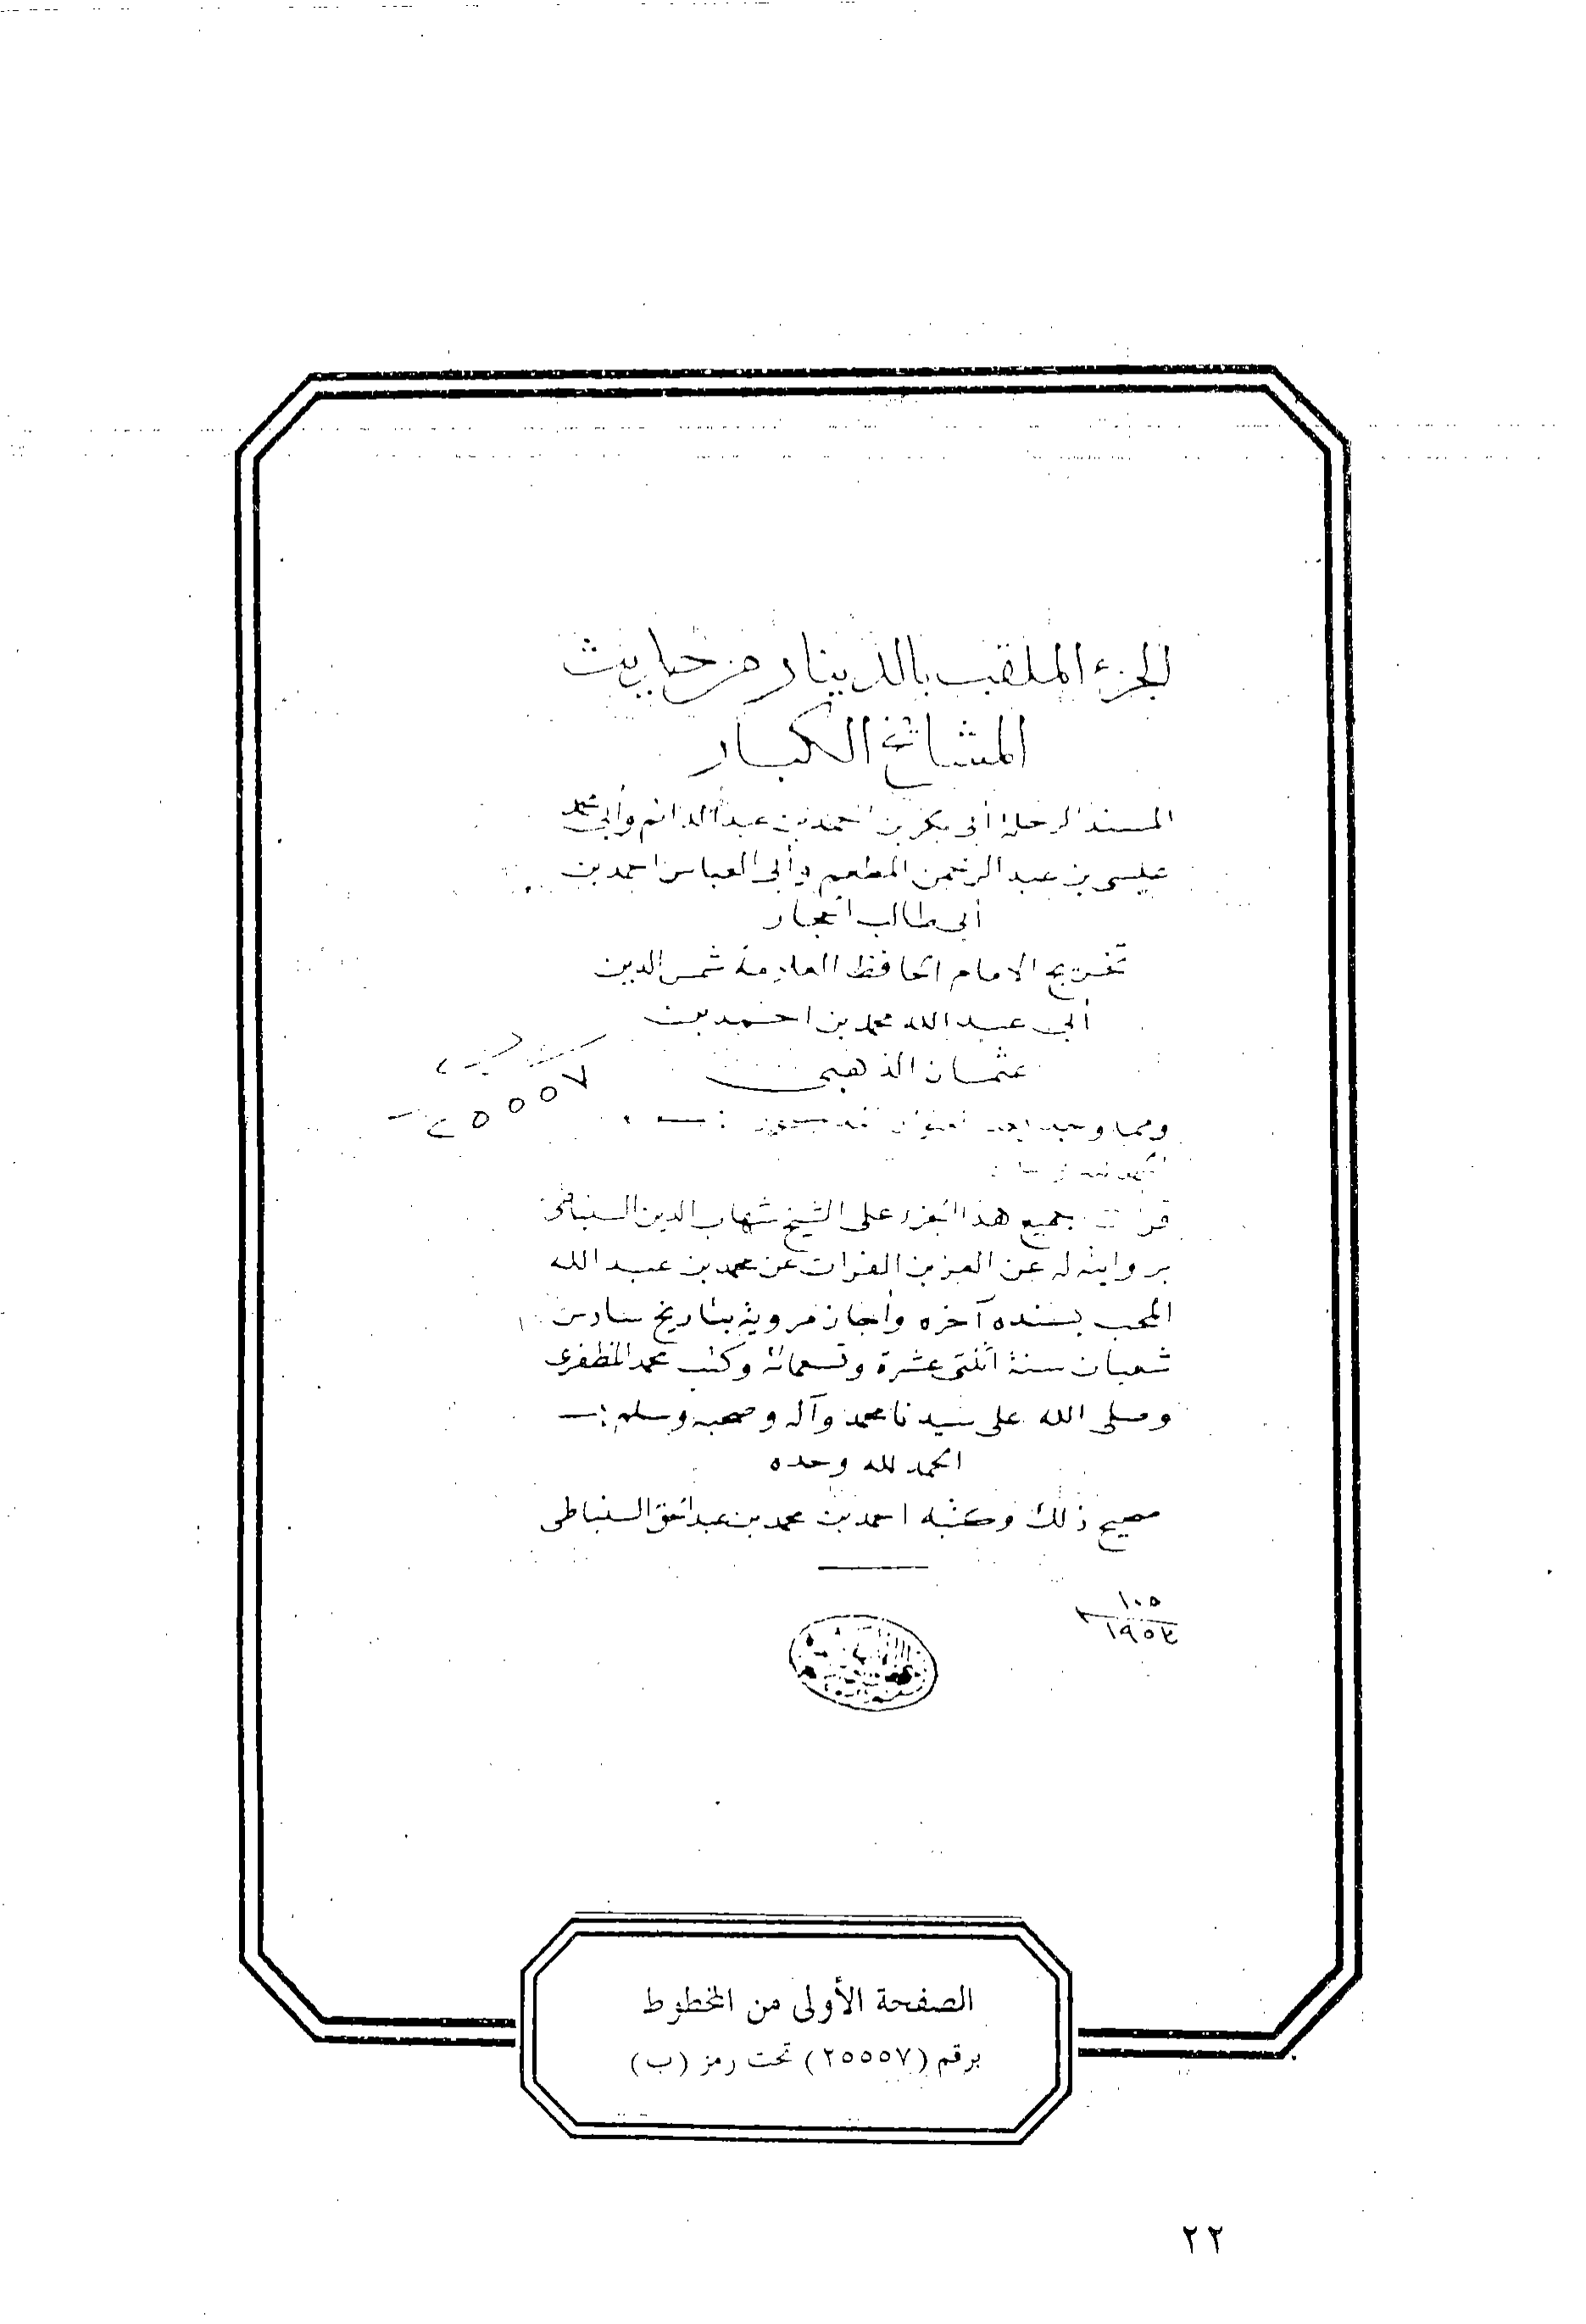 الجزء الملقب بالدينار من حديث
المشائخ الكبار
المسند الرحلة أبي بكر بن احمد بن عبد الدائم وأبي محمد
عيسى بن عبد الرحمن المطعم وأبي العباس احمد بن
أبي طالب الحجار
تخريج الامام الحافظ العلامة شمس الدين
أبي عبد الله محمد بن احمد بن
عثمان الذهبي
٢٥٥٥٧
ومما وجد بعد
قرأت جميع هذا الجزء على الشيخ شهاب الدين السنباطي
بروايته له عن العز بن الفرات عن محمد بن عبد الله
المحب بسنده آخره وأجاز مرويه بتاريخ سادس
شعبان سنة اثنتي عشرة وتسعمائة وكتب محمد المظفري
وصلى الله على سيدنا محمد وآله وصحبه وسلم :ــ
الحمد لله وحده
صحيح ذلك وكتبه احمد بن محمد بن عبد الحق السنباطي
١٠٥
١٩٥٣
الصفحة الأولى من المخطوط
برقم (٢٥٥٥٧) تحت رمز (ب)
٢٢